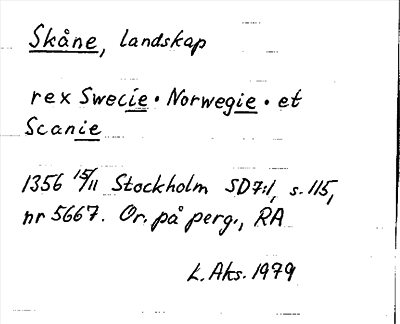 Skåne, landskap
rex Swecie · Norwegie · et
Scanie
1356 15/11 Stockholm SD7:1, s. 115,
nr 5667. Or. på perg., RA
L. Aks. 1979